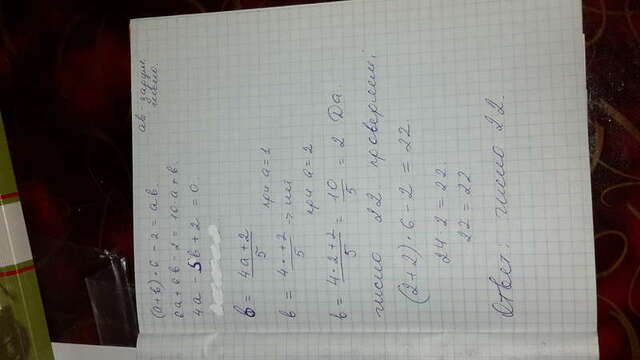 ab - задум. число.
(a+b)·6-2=ab.
6a+6b-2=10·a+b.
4a-5b+2=0.
b = (4a+2)/5
b = (4·1+2)/5 → нет при a=1
b = (4·2+2)/5 = 10/5 = 2 Да. при a=2
число 22 проверяем:
(2+2)·6-2=22.
24-2=22.
22=22
Ответ: число 22.